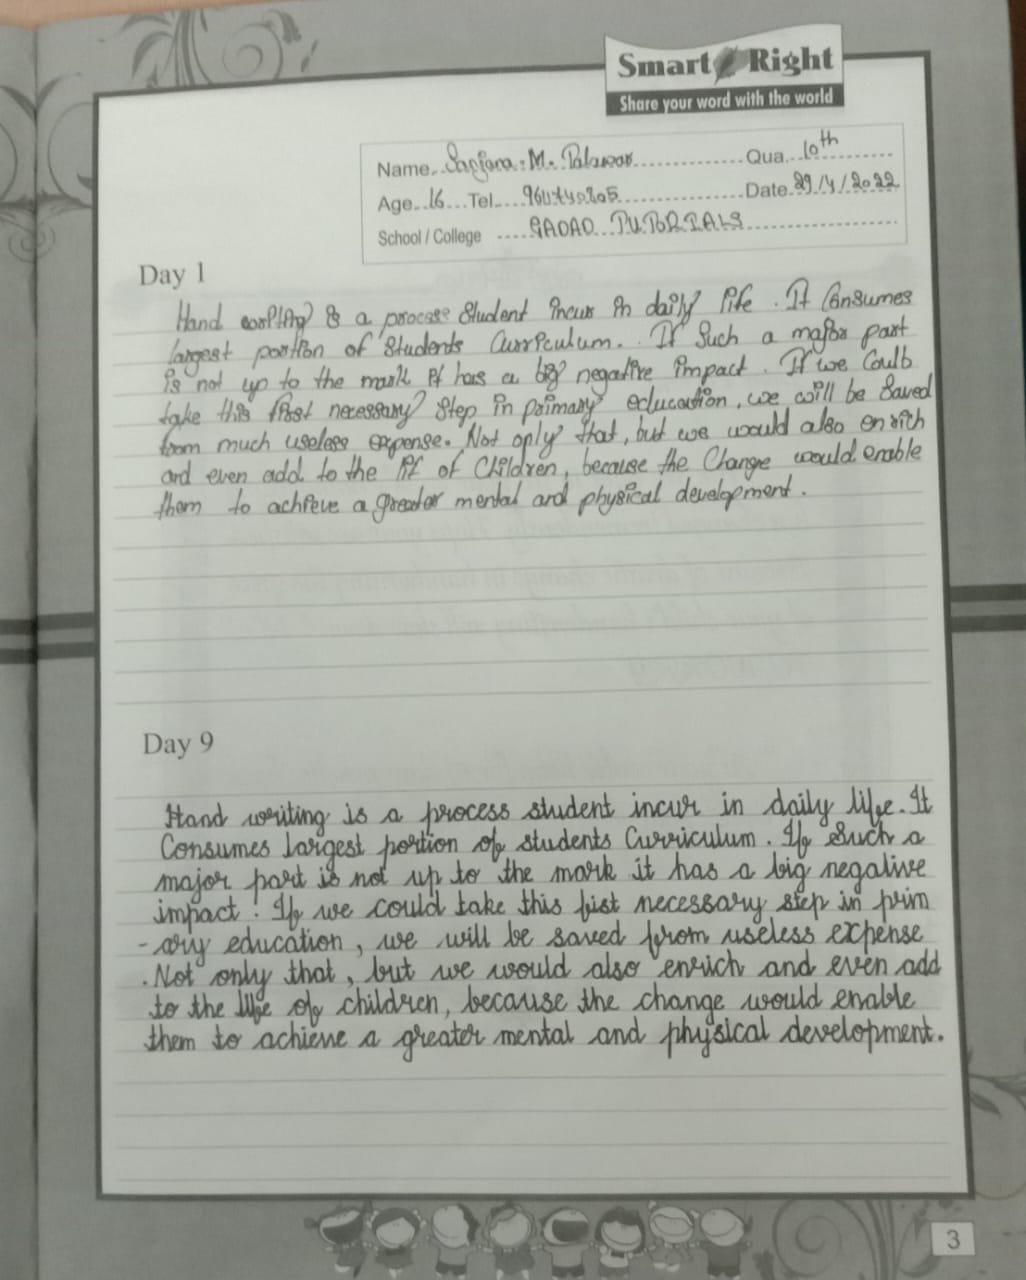 Smart Right
Share your word with the world
Name M. Qua. 10th
Age 16 Tel. Date 29/4/2022
School / College
Day 1
Hand writing is a process student incur in daily life. It Consumes
largest portion of Students Curriculum. If Such a major part
is not up to the mark it has a big negative impact. If we Coulb
take this first necessary Step in primary education, we will be Saved
from much useless expense. Not only that, but we would also enrich
and even add to the lif of Children, because the Change would enable
them to achieve a greater mental and physical development.
Day 9
Hand writing is a process student incur in daily life. It
Consumes largest portion of students Curriculum. If Such a
major part is not up to the mark it has a big negative
impact. If we could take this fist necessary step in prim
-ary education, we will be saved from useless expense
. Not only that, but we would also enrich and even add
to the life of children, because the change would enable
them to achieve a greater mental and physical development.
3